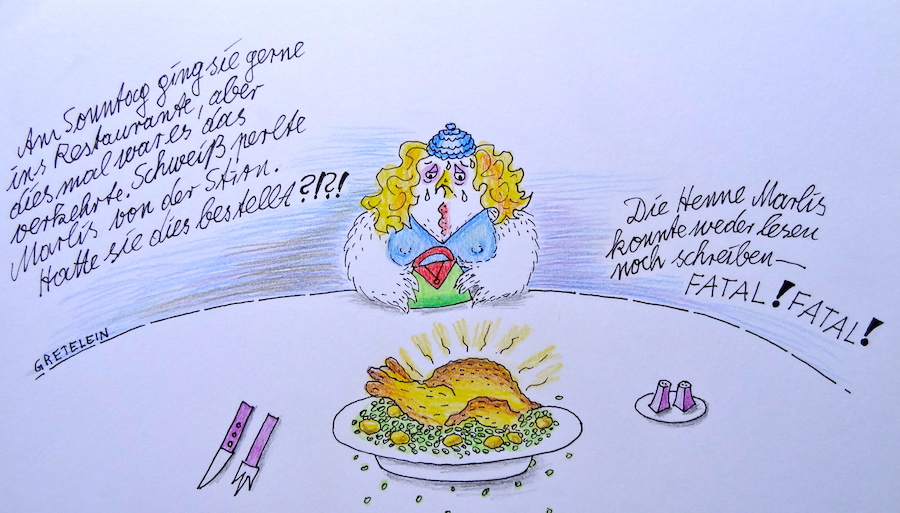 Am Sonntag ging sie gerne
ins Restaurante, aber
diesmal war es das
verkehrte. Schweiß perlte
Marlis von der Stirn.
Hatte sie dies bestellt?!?!
Die Henne Marlis
konnte weder lesen
noch schreiben—
FATAL! FATAL!
GRETELEIN